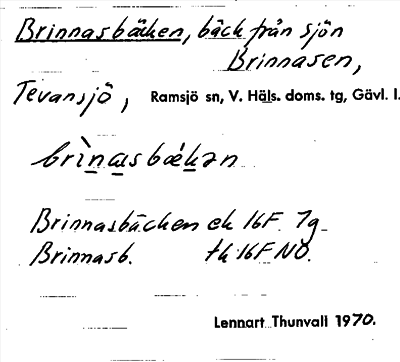 Brinnasbäcken, bäck från sjön
Brinnasen,
Tevansjö, Ramsjö sn, V. Häls. doms. tg, Gävl. l.
brìnasbǽkən
Brinnasbäcken ek 16F 7g
Brinnasb. tk 16F NO.
Lennart Thunvall 1970.